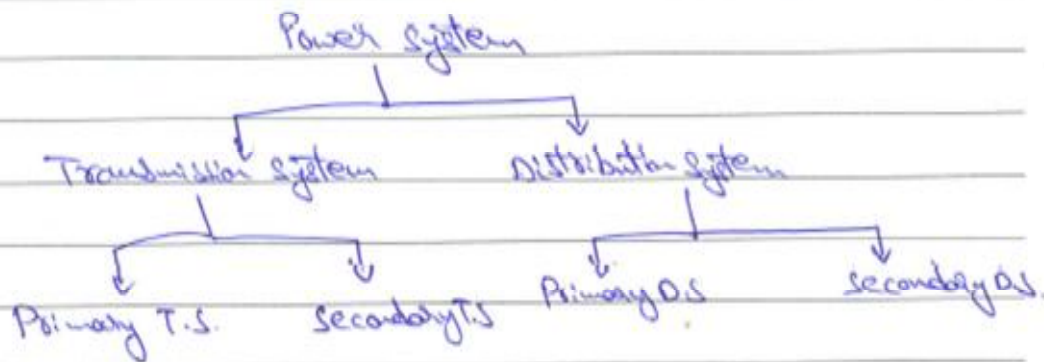 Power system
Transmission system Distribution system
Primary T.S. Secondary T.S Primary D.S Secondary D.S.